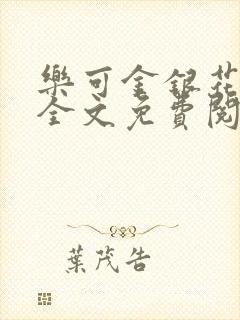 樂可金銀花
全文免費閱
葉茂告